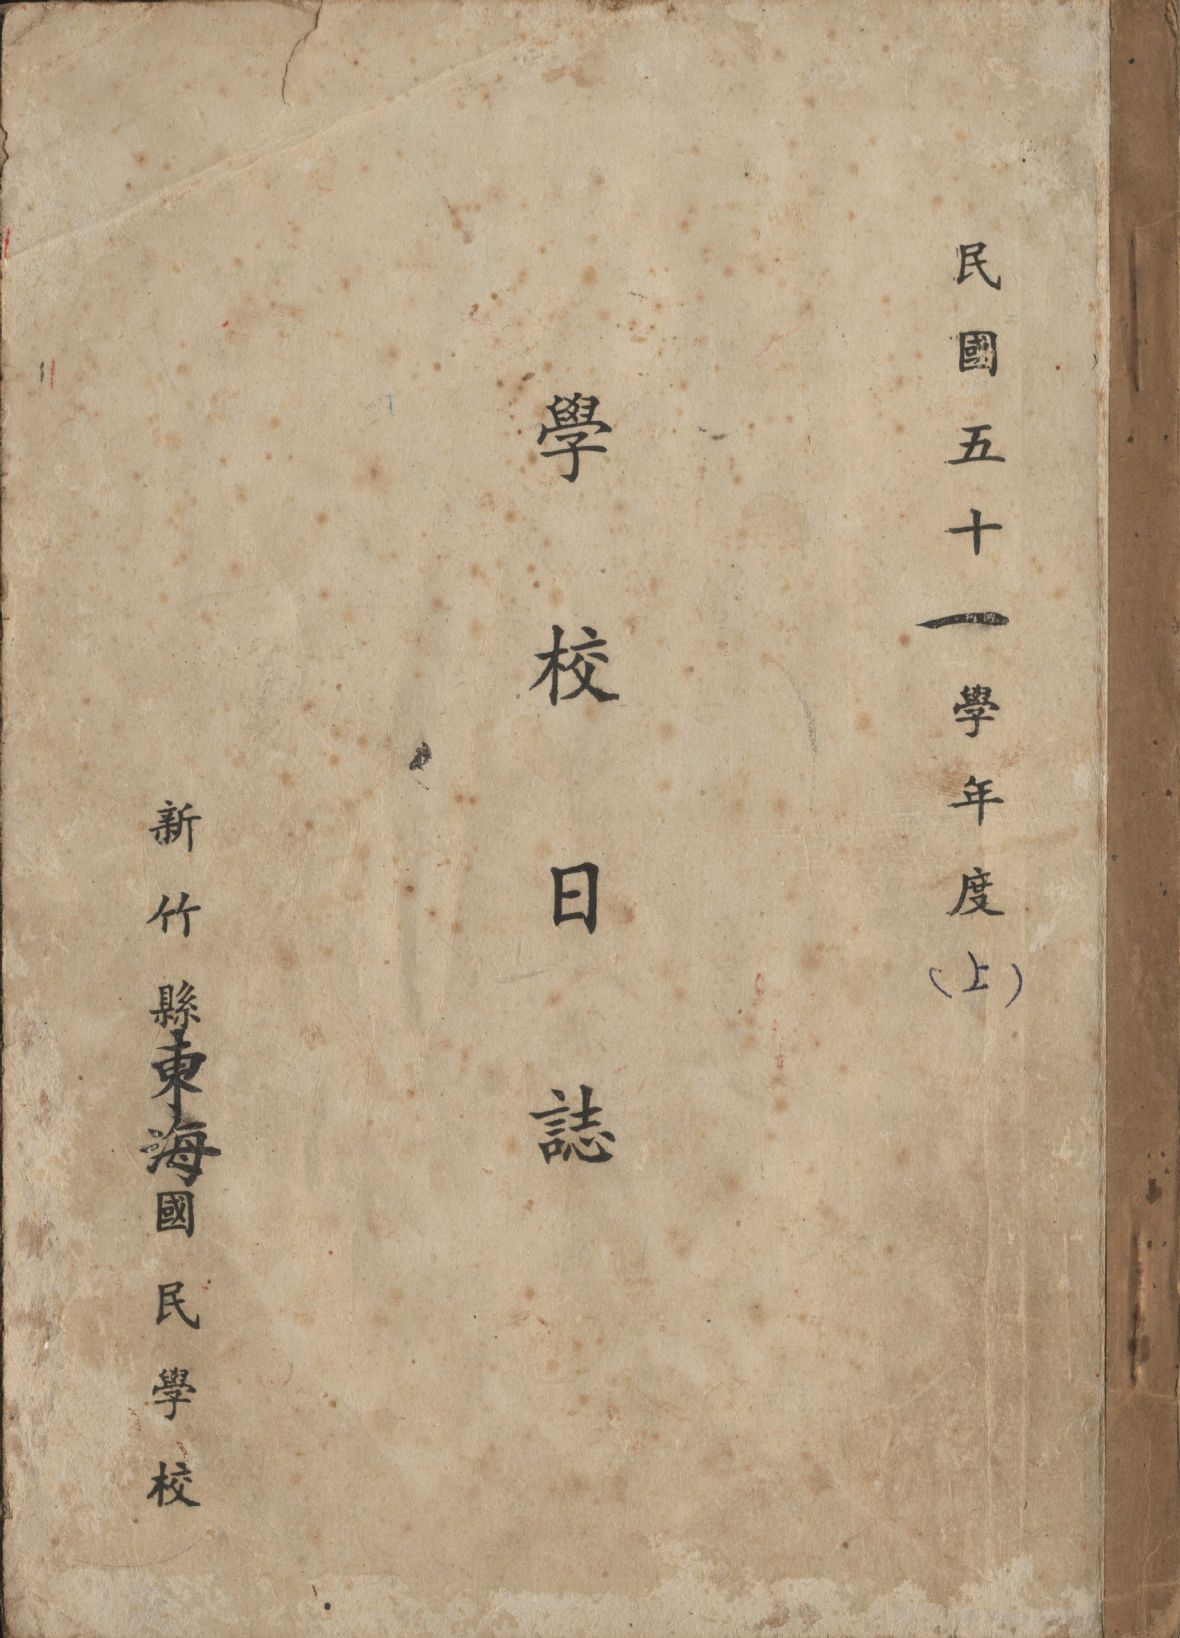 民國五十一學年度(上)
學校日誌
新竹縣東海國民學校